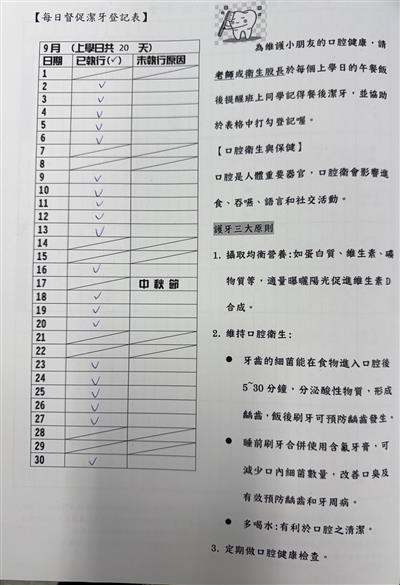 【每日督促潔牙登記表】
9月 (上學日共 20 天)
日期 已執行(✓) 未執行原因
1
2 ✓
3 ✓
4 ✓
5 ✓
6 ✓
7
8
9 ✓
10 ✓
11 ✓
12 ✓
13 ✓
14
15
16 ✓
17 中秋節
18 ✓
19 ✓
20 ✓
21
22
23 ✓
24 ✓
25 ✓
26 ✓
27 ✓
28
29
30 ✓
為維護小朋友的口腔健康，請
老師或衛生股長於每個上學日的午餐飯
後提醒班上同學記得餐後潔牙，並協助
於表格中打勾登記喔。
【口腔衛生與保健】
口腔是人體重要器官，口腔衛會影響進
食、吞嚥、語言和社交活動。
護牙三大原則
1. 攝取均衡營養:如蛋白質、維生素、礦
物質等，適量曝曬陽光促進維生素D
合成。
2. 維持口腔衛生:
● 牙齒的細菌能在食物進入口腔後
5~30分鐘，分泌酸性物質、形成
齲齒，飯後刷牙可預防齲齒發生。
● 睡前刷牙合併使用含氟牙膏，可
減少口內細菌數量，改善口臭及
有效預防齲齒和牙周病。
● 多喝水:有利於口腔之清潔。
3. 定期做口腔健康檢查。